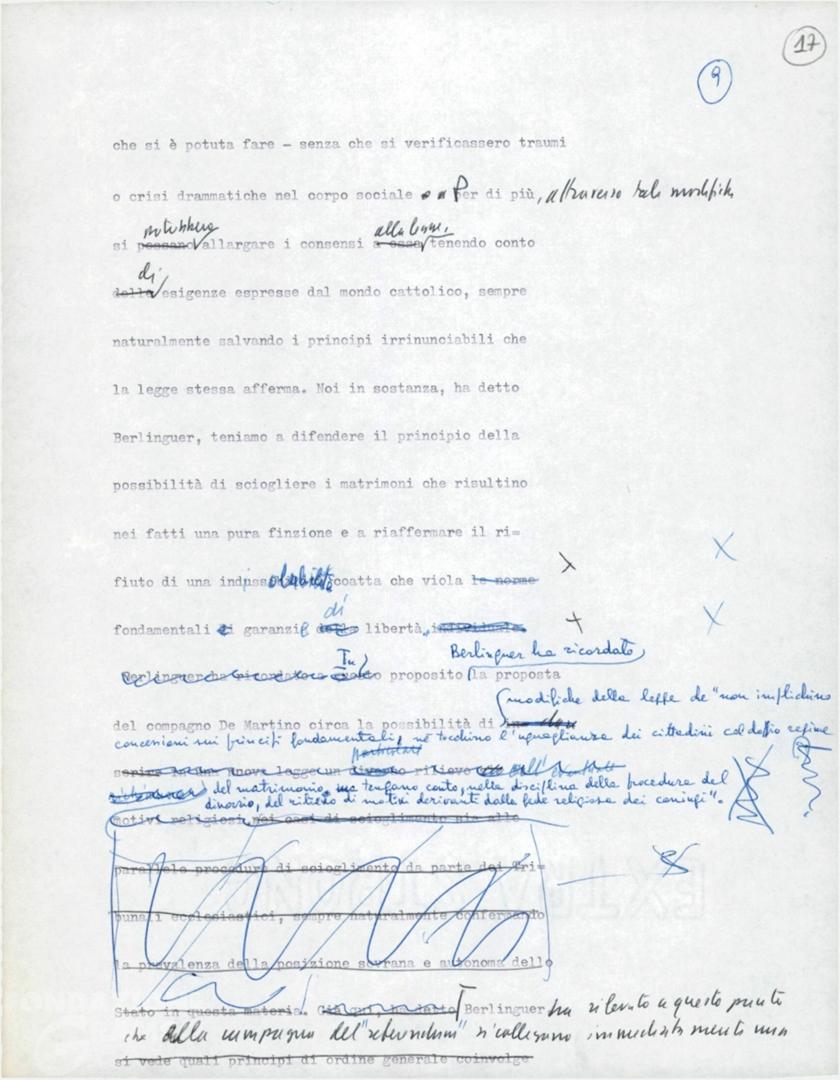 17
9
che si è potuta fare - senza che si verificassero traumi
o crisi drammatiche nel corpo sociale Per di più, attraverso tale modifiche
potrebbero alla legge,
si possano allargare i consensi a essa tenendo conto
di
della esigenze espresse dal mondo cattolico, sempre
naturalmente salvando i principi irrinunciabili che
la legge stessa afferma. Noi in sostanza, ha detto
Berlinguer, teniamo a difendere il principio della
possibilità di sciogliere i matrimoni che risultino
nei fatti una pura finzione e a riaffermare il ri=
fiuto di una indissolubilità coatta che viola le norme
di
fondamentali garanzie libertà, individuale.
In Berlinguer ha ricordato
Berlinguer ha ricordato proposito la proposta
modifiche della legge che "non implichino
del compagno De Martino circa la possibilità di
concessioni sui principi fondamentali, né tocchino l'uguaglianza dei cittadini col regime
particolare
nuova legge un diverso rilievo
del matrimonio, ma tengano conto, nella disciplina della procedura del
divorzio, del rilievo di motivi derivanti dalla fede religiosa dei coniugi".
motivi religiosi nei casi di scioglimento sia alle
parallele procedure di scioglimento da parte dei Tri=
bunali ecclesiastici, sempre naturalmente confermando
la prevalenza della posizione sovrana e autonoma dello
Stato in questa materia. Berlinguer ha rilevato a questo punto
che alla campagna del "referendum" si collegano immediatamente una
si vede quali principi di ordine generale coinvolge